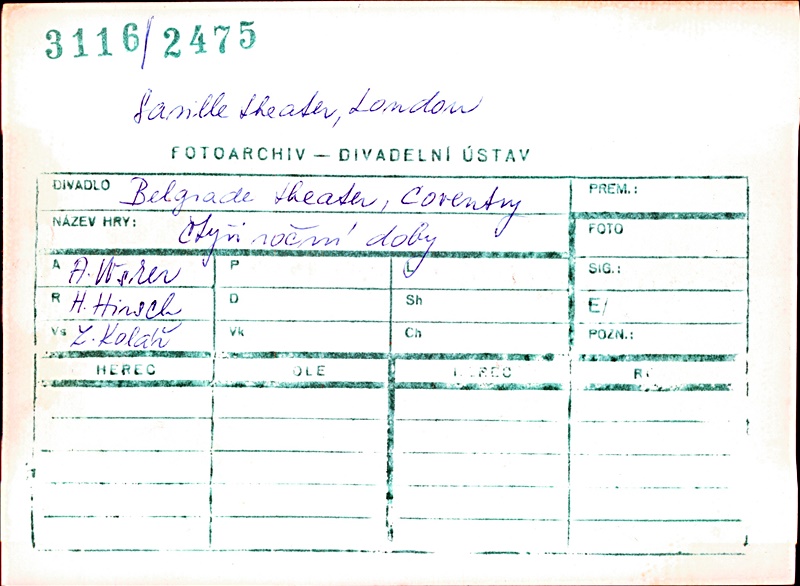 3116/2475
Saville theater, London
FOTOARCHIV — DIVADELNÍ ÚSTAV
DIVADLO Belgrade theater, Coventry PREM.:
NÁZEV HRY: Čtyři roční doby FOTO
A A. Wesker P L SIG.:
R H. Hirsch D Sh E/
Vs Z. Kolář Vk Ch POZN.:
HEREC